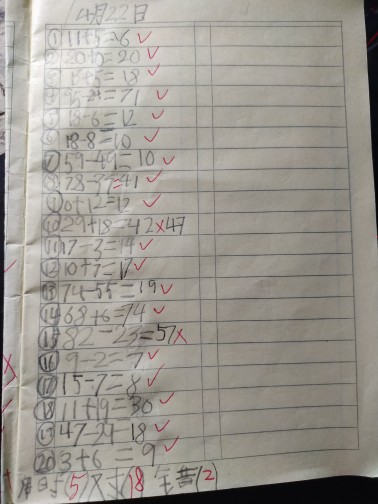 4月22日
① 11+5=16✓
② 20+0=20✓
③ 13+5=18✓
④ 95-24=71✓
⑤ 18-6=12✓
⑥ 18-8=10✓
⑦ 59-49=10✓
⑧ 78-37=41✓
⑨ 0+12=12✓
⑩ 29+18=42×47
⑪ 17-3=14✓
⑫ 10+7=17✓
⑬ 74-55=19✓
⑭ 68+6=74✓
⑮ 82-23=57×
⑯ 9-2=7✓
⑰ 15-7=8✓
⑱ 11+19=30✓
⑲ 47-29=18✓
⑳ 3+6=9✓
5 18 (2)